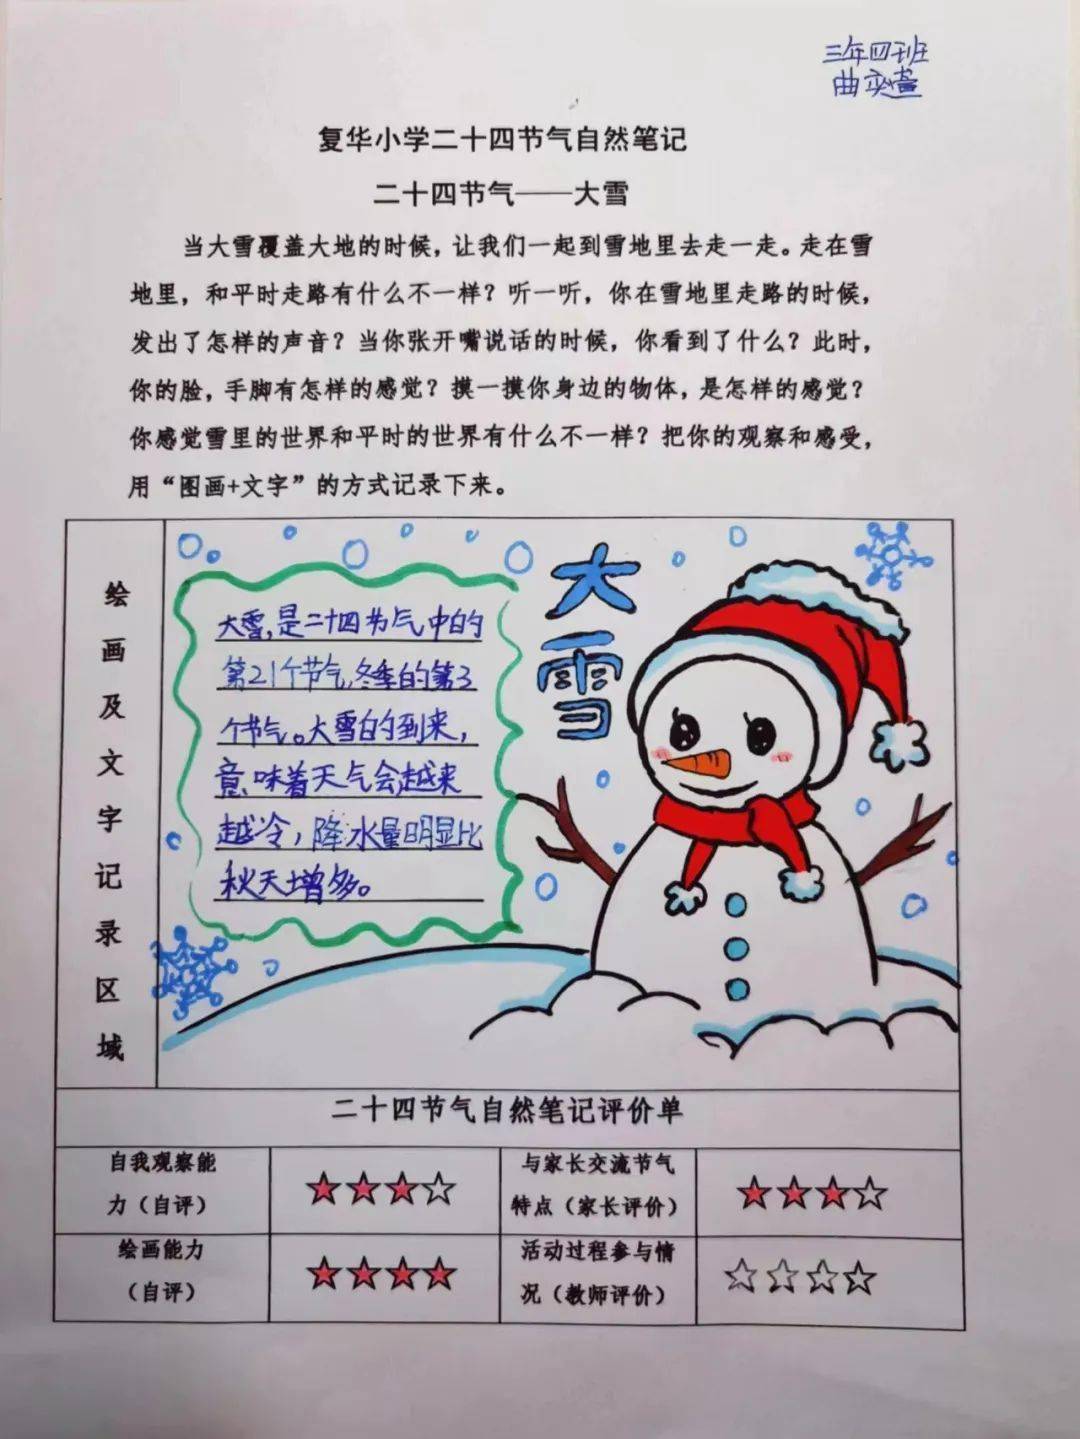 三年四班
曲奕萱
复华小学二十四节气自然笔记
二十四节气——大雪
当大雪覆盖大地的时候，让我们一起到雪地里去走一走。走在雪
地里，和平时走路有什么不一样？听一听，你在雪地里走路的时候，
发出了怎样的声音？当你张开嘴说话的时候，你看到了什么？此时，
你的脸，手脚有怎样的感觉？摸一摸你身边的物体，是怎样的感觉？
你感觉雪里的世界和平时的世界有什么不一样？把你的观察和感受，
用“图画+文字”的方式记录下来。
绘画及文字记录区域
大雪，是二十四节气中的
第21个节气，冬季的第3
个节气。大雪的到来，
意味着天气会越来
越冷，降水量明显比
秋天增多。
大雪
二十四节气自然笔记评价单
自我观察能
力（自评）
与家长交流节气
特点（家长评价）
绘画能力
（自评）
活动过程参与情
况（教师评价）